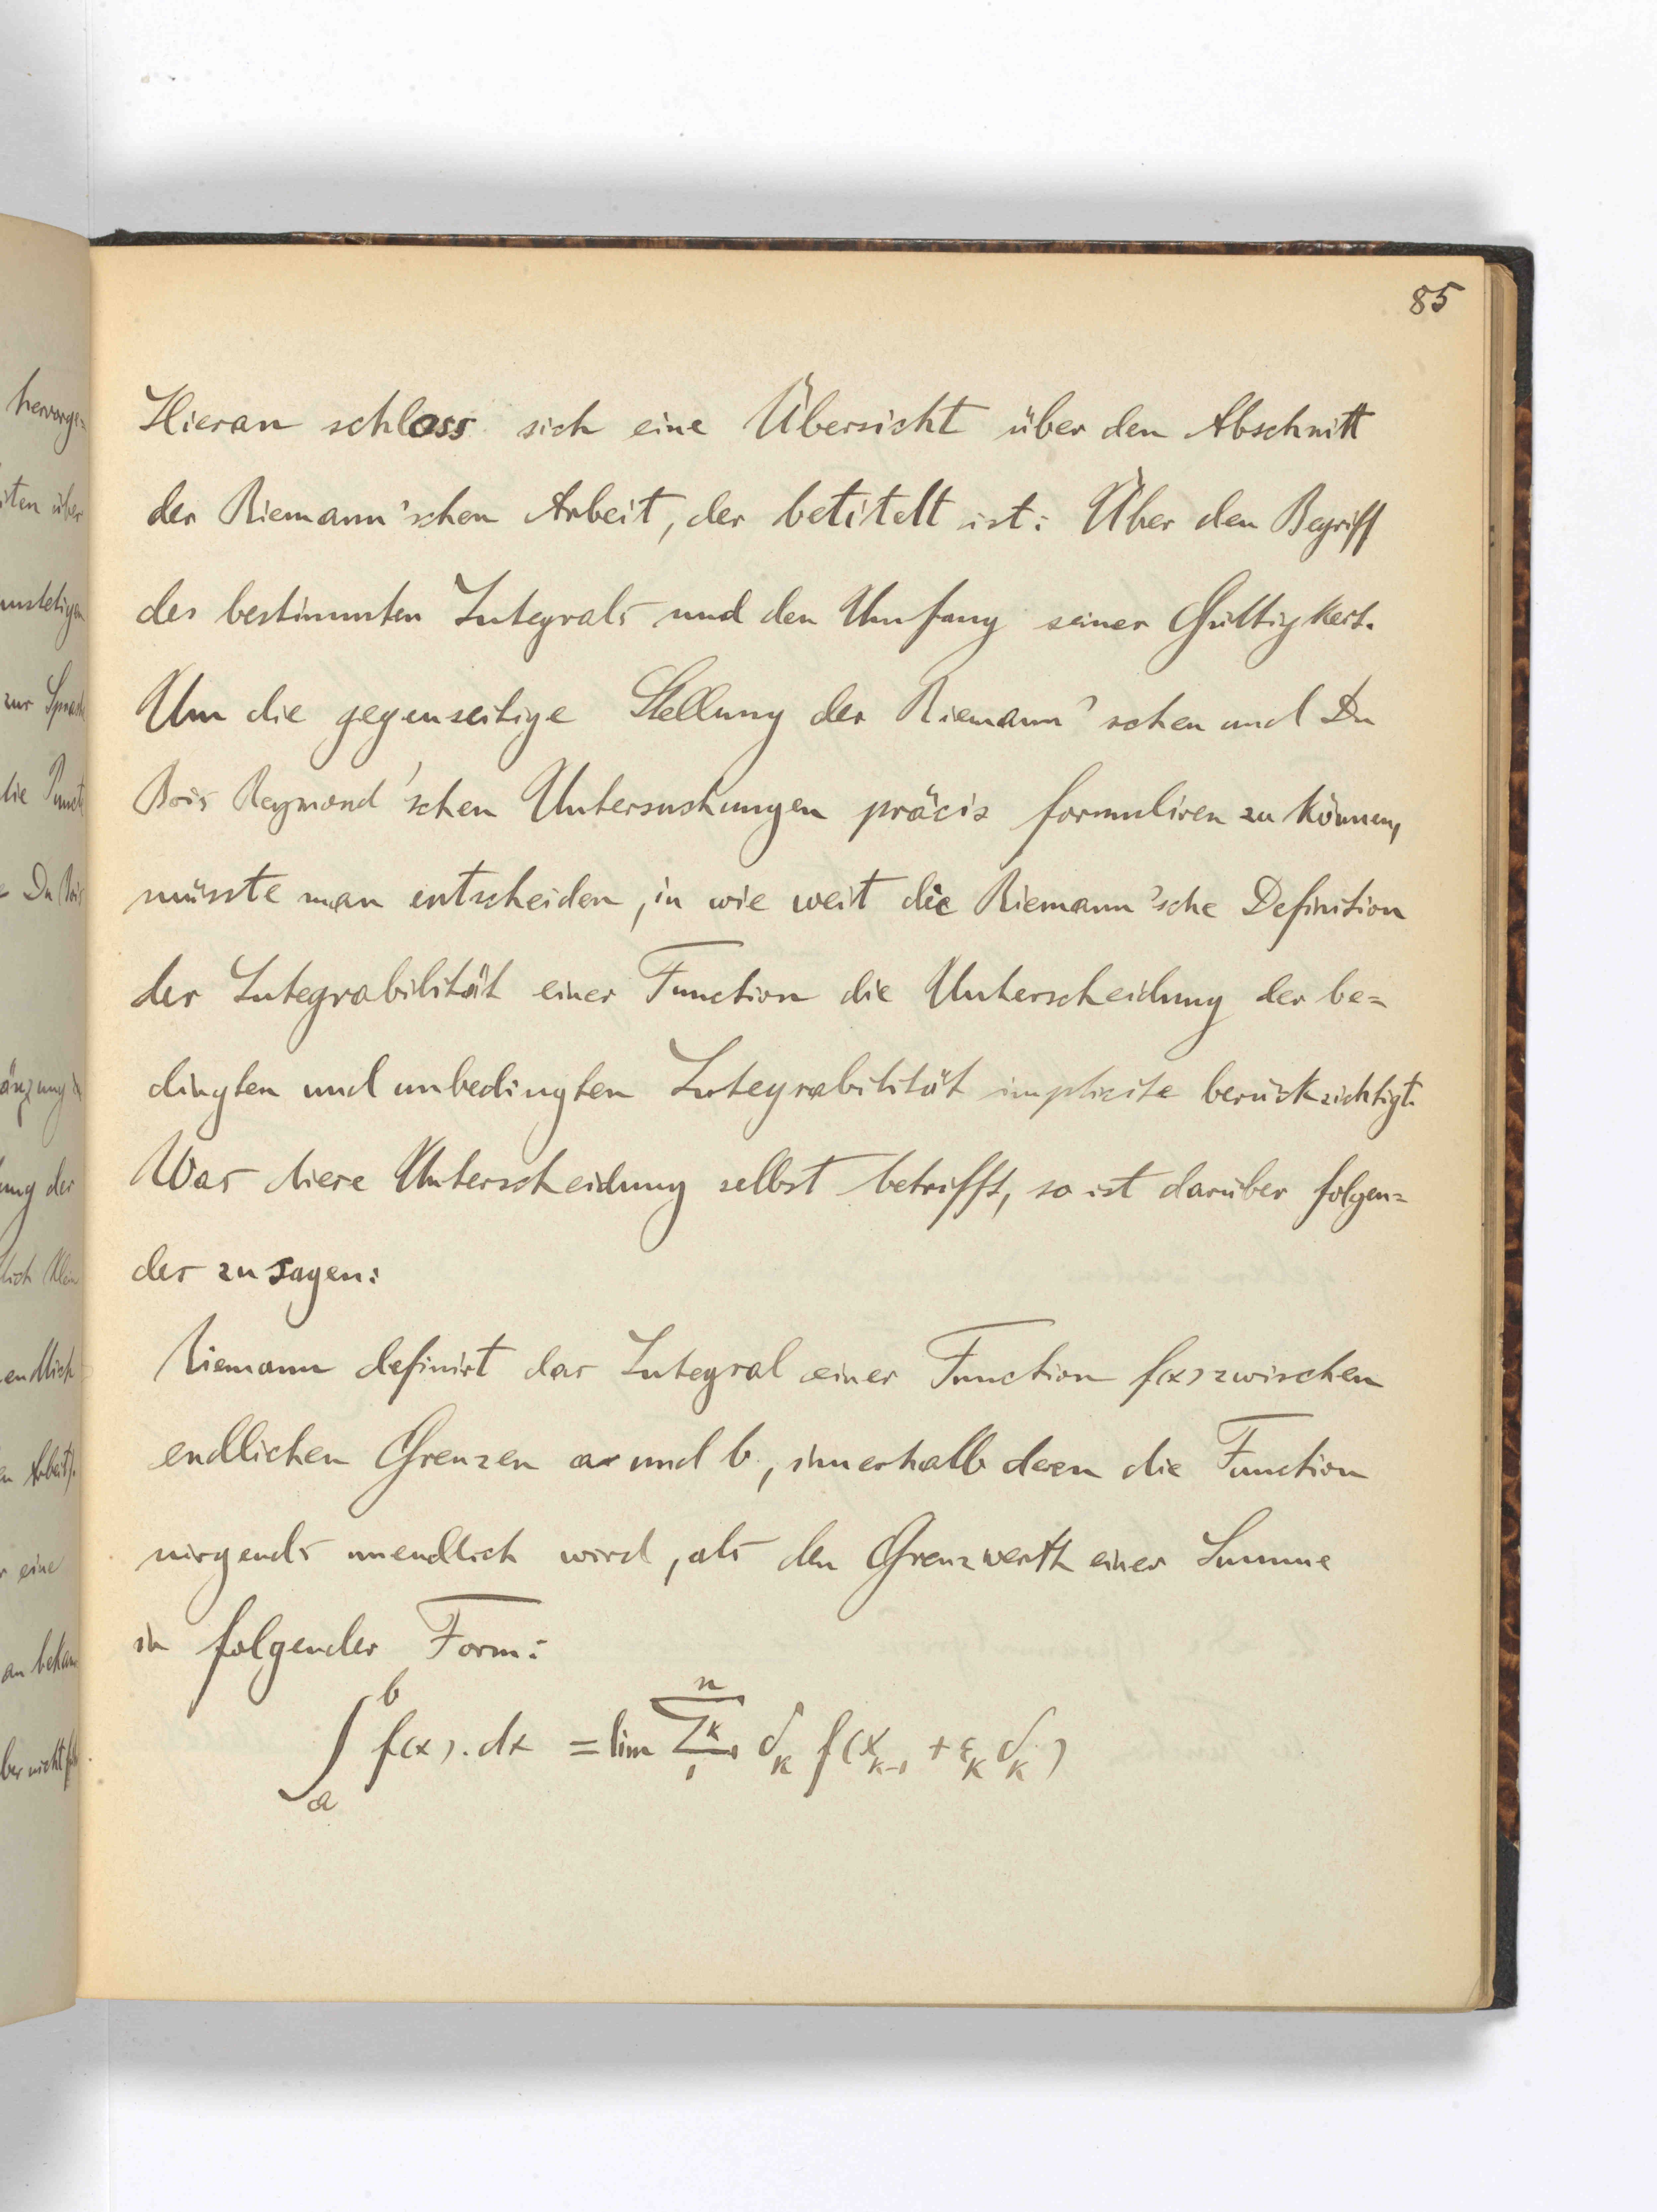 85
Hieran schloss sich eine Übersicht über den Abschnitt
der Riemann'schen Arbeit, der betitelt ist: Über den Begriff
des bestimmten Integrals und den Umfang seiner Gültigkeit.
Um die gegenseitige Stellung der Riemann'schen und Du
Bois Reymond'schen Untersuchungen präcis formuliren zu können,
müsste man entscheiden, in wie weit die Riemann'sche Definition
der Integrabilität einer Function die Unterscheidung der be=
dingten und unbedingten Integrabilität implicite berücksichtigt.
Was diese Unterscheidung selbst betrifft, so ist darüber folgen=
des zu sagen:
Riemann definirt das Integral einer Function f(x) zwischen
endlichen Grenzen a und b, innerhalb deren die Function
nirgends unendlich wird, als den Grenzwerth einer Summe
in folgender Form:
∫_a^b f(x).dx = lim Σ_1^n k δ_k f(x_{k-1} + ε_k δ_k)
hervorge=
unstetigen
zur Sprache
die Puncte
Du Bois
ung der
endlich
Arbeit).
eine
an bekan